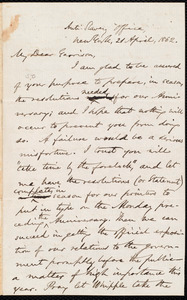 Anti-Slavery Office,
New York, 28 April, 1862.
My Dear Garrison,
I am glad to be assured
of your purpose to prepare, in season,
the resolutions needed for our Anni-
versary; and I hope that nothing will
occur to prevent you from doing
so. A failure would be a serious
misfortune. I trust you will
take time by the forelock, and let
me have the resolutions (or Statement)
complete, in season for our printers to
put in type on the Monday pre-
ceding the Anniversary. Then we can
succeed in getting the official exposition
of our relations to the Govern-
ment promptly before the public—
a matter of high importance this
year. Pray let Whipple take the